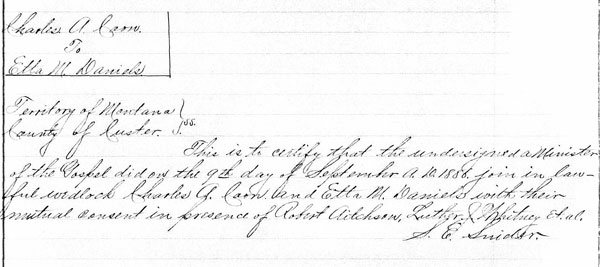 Charles A. Corn.
To
Etta M Daniels
Territory of Montana
County of Custer. } ss.
This is to certify that the undersigned a Minister
of the Gospel did on the 9th day of September A.D. 1886. join in law-
ful wedlock Charles A. Corn and Etta M. Daniels with their
mutual consent in presence of Robert Aitchson, Luther J. Whitney Et. al.
S. E. Snider.